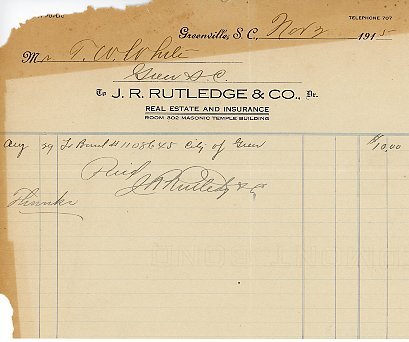 PUBLIC
TELEPHONE 707
Greenville, S. C., Nov 2 1915
Mr T. W. White
Greer S. C.
To J. R. RUTLEDGE & CO., Dr.
REAL ESTATE AND INSURANCE
ROOM 302 MASONIC TEMPLE BUILDING
Aug 29 To Bond #1108645 City of Greer $10.00
Paid
J R Rutledge & Co
Thanks